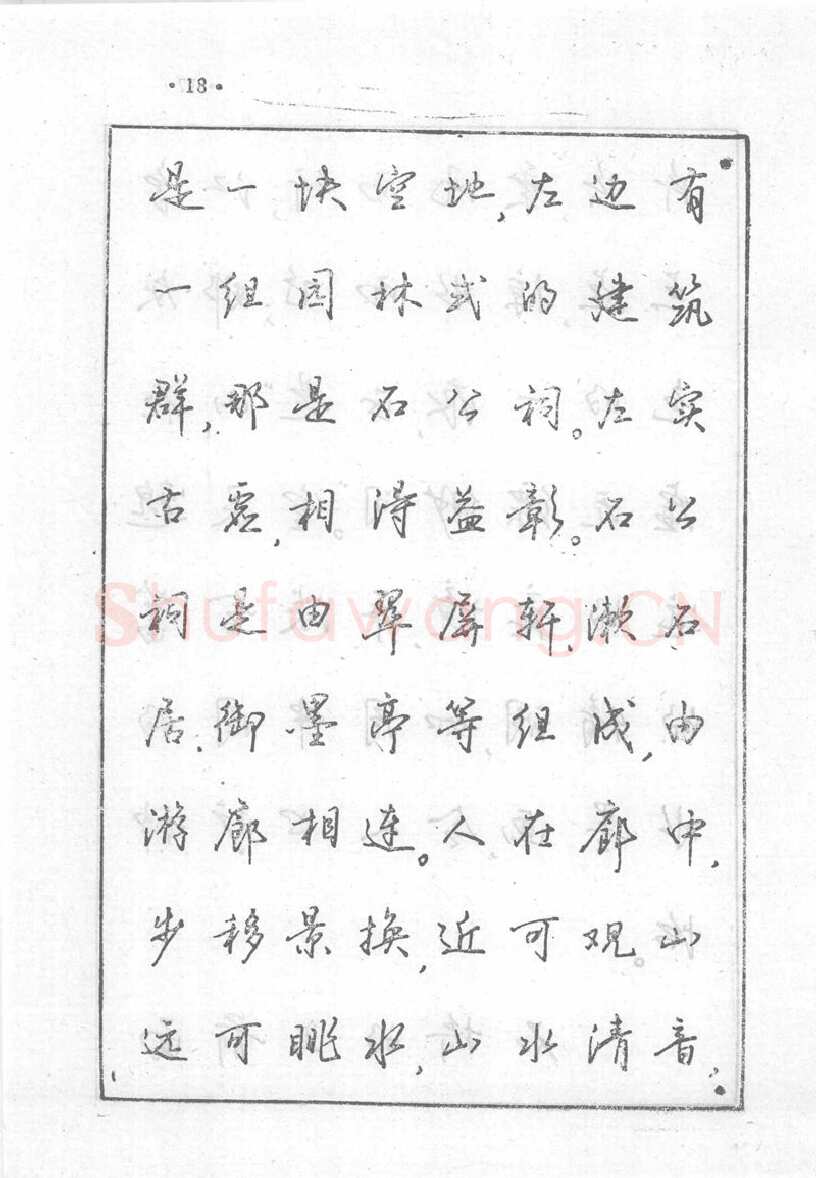 ·18·
是一块空地,左边有
一组园林式的建筑
群,那是石公祠。左实
右虚,相得益彰。石公
祠是由翠屏轩、漱石
居、御墨亭等组成,由
游廊相连。人在廊中,
步移景换,近可观山
远可眺水,山水清音。
Shufawang.CN